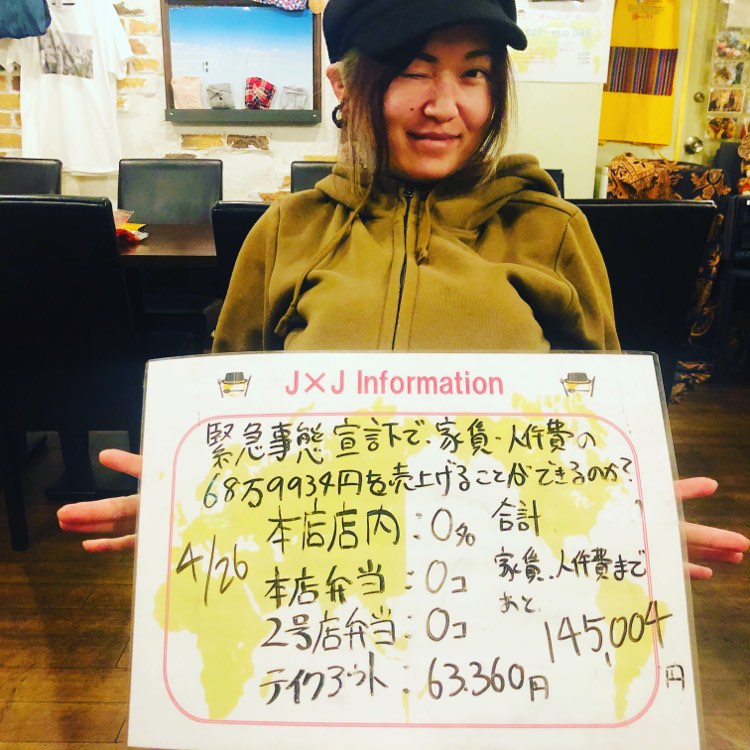 J×J Information
緊急事態宣言下で、家賃・人件費の
68万9934円を売上げることができるのか?
4/26
本店店内:0名
本店弁当:0コ
2号店弁当:0コ
テイクアウト:63.360円
合計
家賃、人件費まで
あと
145,004円